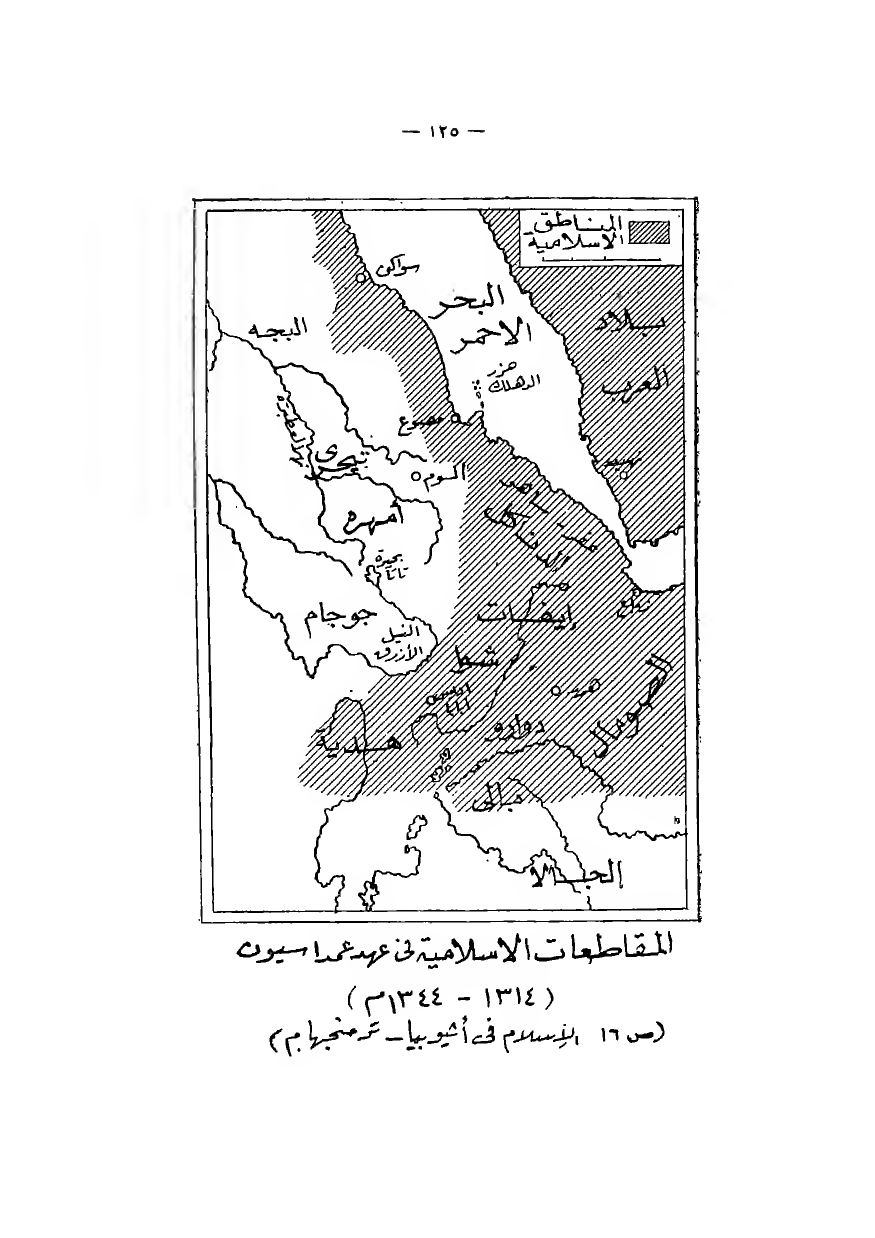 — ١٢٥ —
المناطق
الاسلامية
سواكن
البحر
الاحمر
بلاد
العرب
البجه
جزر
الدهلك
مصوع
تيجرى
اكسوم
أمهره
بحيرة
تانا
جوجام
النيل
الأزرق
إيفات
زيلع
شوا
هرر
الصومال
هدية
دوارو
بالى
الجالا
المقاطعات الاسلامية فى عهد عمداسيون
(١٣١٤ – ١٣٤٤م)
(ص ١٦ الإسلام فى أثيوبيا – ترمنجهام)